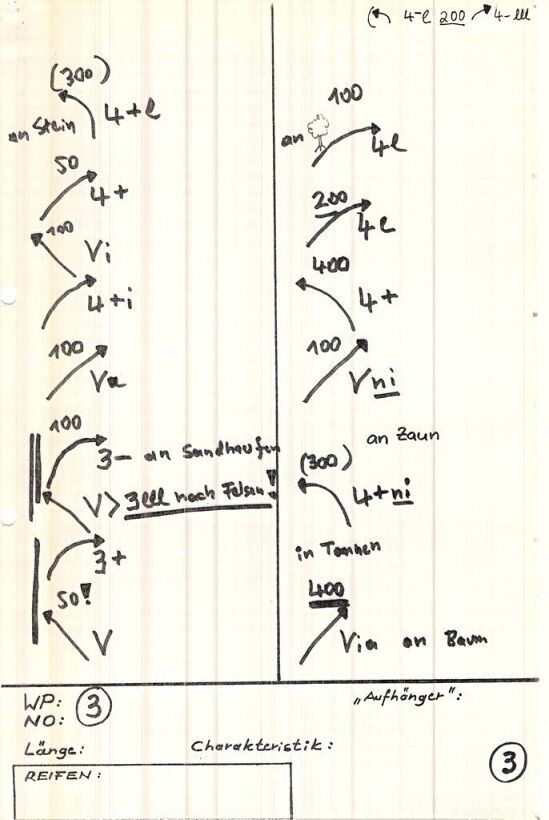 4-l 200 4-lll
(300)
an Stein 4+l
50
4+
100
Vi
4+i
100
Va
100
3- an Sandhaufen
V> 3lll nach Felsen!
3+
50!
V
100
an 4l
200
4l
400
4+
100
Vni
an Zaun
(300)
4+ni
in Tannen
400
Via an Baum
WP: 3
NO:
„Aufhänger“:
Länge: Charakteristik:
REIFEN:
3